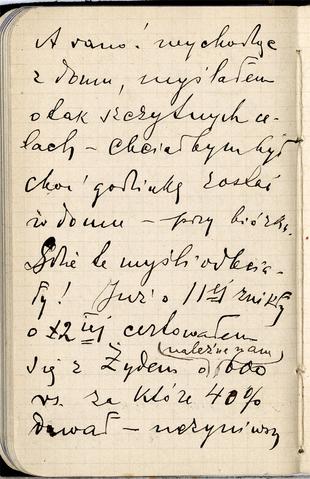 A rano! wychodząc
z domu, myślałem
o tak szczytnych ce-
lach – chciałbym być
choć godzinkę zostać
w domu – przy biórku.
Gdzie te myśli odbiega-
ły! Już o 11ej znikły
o 12iej certowałem
(należne nam)
się z Żydem o 1600
rs. za które 40%
dawał – uczyniwszy